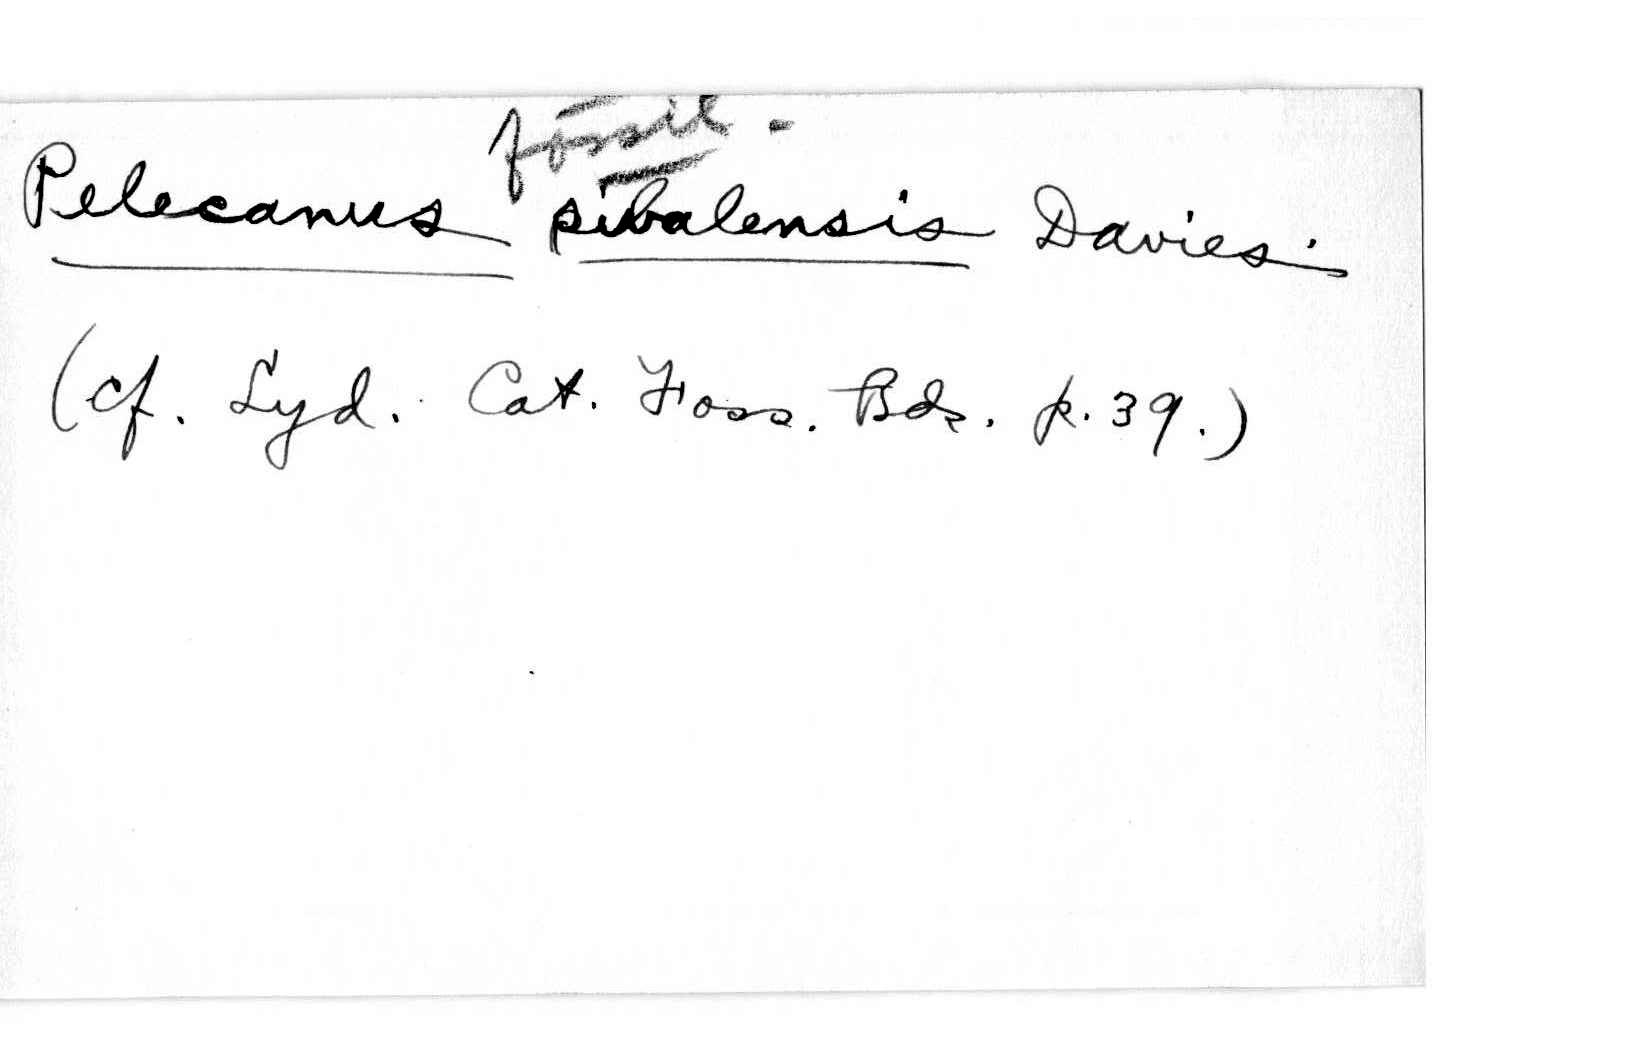 fossil -
Pelecanus sivalensis Davies.
(cf. Lyd. Cat. Foss. Bds. p. 39.)